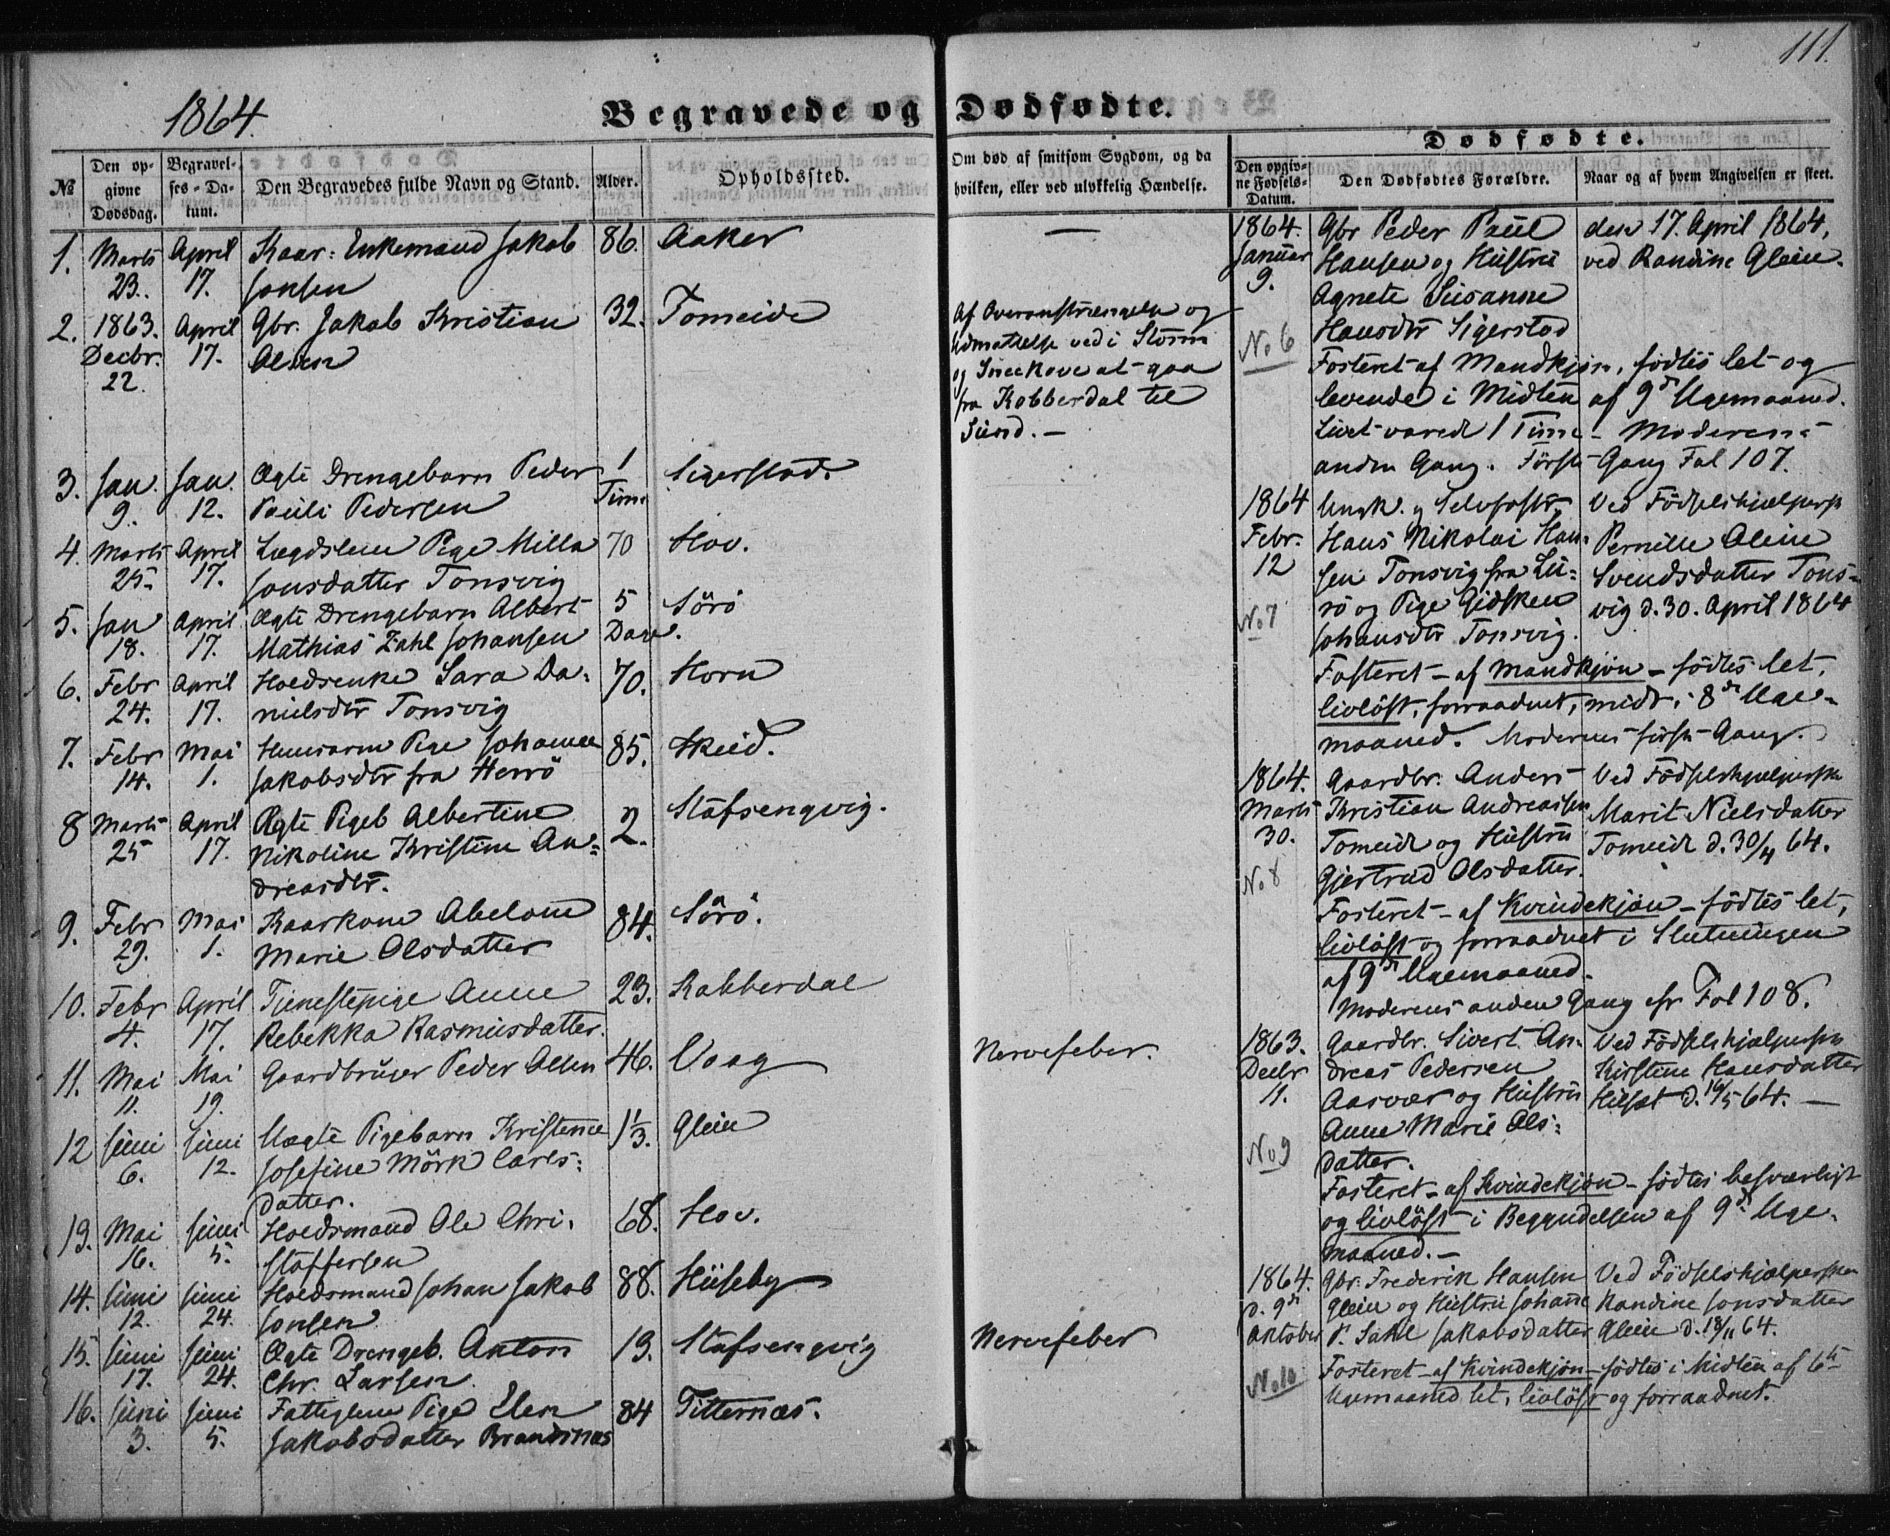 111.
1864.
Begravede og Dødfødte.
Dødfødte.
No
Den op-
givne
Dødsdag.
Begravel-
ses-Da-
tum.
Den Begravedes fulde Navn og Stand.
Alder.
Opholdssted.
Om død af smitsom Sygdom, og da
hvilken, eller ved ulykkelig Hændelse.
Den opgiv-
ne Fødsels-
Datum.
Den Dødfødtes Forældre.
Naar og af hvem Angivelsen er skeet.
1. Marts 23. April 17. Kaar: Enkemand Jakob 86. Aaker —
Jonsen
2. 1863. Decbr. 22. April 17. Gbr. Jakob Kristian 32. Tomeide
Olsen
Af Overanstrængelse og
Udmattelse ved i Storm
og Sneekove at gaa
fra Kobberdal til
Sund. —
3. Jan. 9. Jan. 12. Ægte Drengebarn Peder 1 Time Sigerstad.
Pauli Pedersen
4. Marts 25. April 17. Lægdslem Pige Milla 70 Hov.
Jonsdatter Tonsvig
5. Jan 18. April 17. Ægte Drengebarn Albert 5 Dage. Sörö
Mathias Zahl Johansen
6. Febr 24. April 17. Hoedsenke Sara Da- 70. Horn
nielsdtr Tonsvig
7. Febr 14. Mai 1. Huusarm Pige Johanna 85. Skeid.
Jakobsdtr fra Herrö
8 Marts 25 April 17. Ægte Pigeb Albertine 2. Stafsengvig.
Nikoline Kristine An-
dreasdtr.
9. Febr 29. Mai 1. Kaarkone Abelone 84. Sörö.
Marie Olsdatter
10. Febr 4. April 17. Tjenestepige Anne 23. Kobberdal
Rebekka Rasmusdatter.
11. Mai 11. Mai 19. Gaardbruger Peder Olsen 46. Vaag Nervefeber.
12 Juni 6. Juni 12. Uægte Pigebarn Kristence 1 1/3. Glein
Josefine Mörk Carls-
datter.
13. Mai 16. Juni 5. Hoedsmand Ole Chri- 68. Hov.
stoffersen
14. Juni 12. Juni 24. Hoedsmand Johan Jakob 88. Huseby
Jonsen
15. Juni 17. Juni 24. Ægte Drengeb. Anton 13. Stafsengvig Nervefeber
Chr. Larsen
16. Juni 3. Juni 5. Fattiglem Pige Elen 84 Titternæs.
Jakobsdatter Brandsnæs
1864. Januar 9. No 6
Gbr Peder Paul
Hansen og Hustru
Agnete Susanne
Hansdtr Sigerstad
den 17. April 1864,
ved Randine Glein.
Fosteret af Mandkjøn, födtes let og
levende i Midten af 9de Ugemaaned.
Livet varede 1 Time — Moderens
anden Gang. Förste Gang Fol 107.
1864 Febr. 12 No 7
Ungk. og Selvfostr
Hans Nikolai Han-
sen Tonsvig fra Lu-
rö og Pige Gidsken
Johansdtr Tonsvig.
Ved Födselshjælpersk
Pernille Oleine
Svendsdatter Tons-
vig d. 30. April 1864
Fosteret — af Mandkjøn — födtes let,
livlöst, forraadnet, midt i 8de Uge-
maaned. Moderens förste Gang.
1864. Marts 30. No 8
Gaardbr. Anders
Kristian Andreassen
Tomeide og Hustru
Gjertrud Olsdatter.
Ved Födselshjælpersken
Marit Nielsdatter
Tomeide d. 30/4 64.
Fosteret — af Kvindekjøn — födtes let,
livlöst og forraadnet i Slutningen
af 9de Ugemaaned.
Moderens anden Gang cfr Fol 108.
1863. Decbr 11. No 9
Gaardbr. Sivert An-
dreas Pedersen
Aasvær og Hustru
Anne Marie Ols-
datter.
Ved Födselshjælpersken
Kirstine Hansdatter
d. 16/5 64. —
Fosteret — af Kvindekjøn — födtes besværligt
og livlöst i Begyndelsen af 9de Uge-
maaned. —
1864. d. 9de Oktober No 10
Gbr. Frederik Hansen
Glein og Hustru Johanne
P. Dahl Jakobsdatter
Ved Födselshjælpersken
Randine Jonsdatter
Glein d. 18/11 64.
Fosteret — af Kvindekjøn — födtes i Midten af 6te
Ugemaaned let, livlöst og forraadnet.